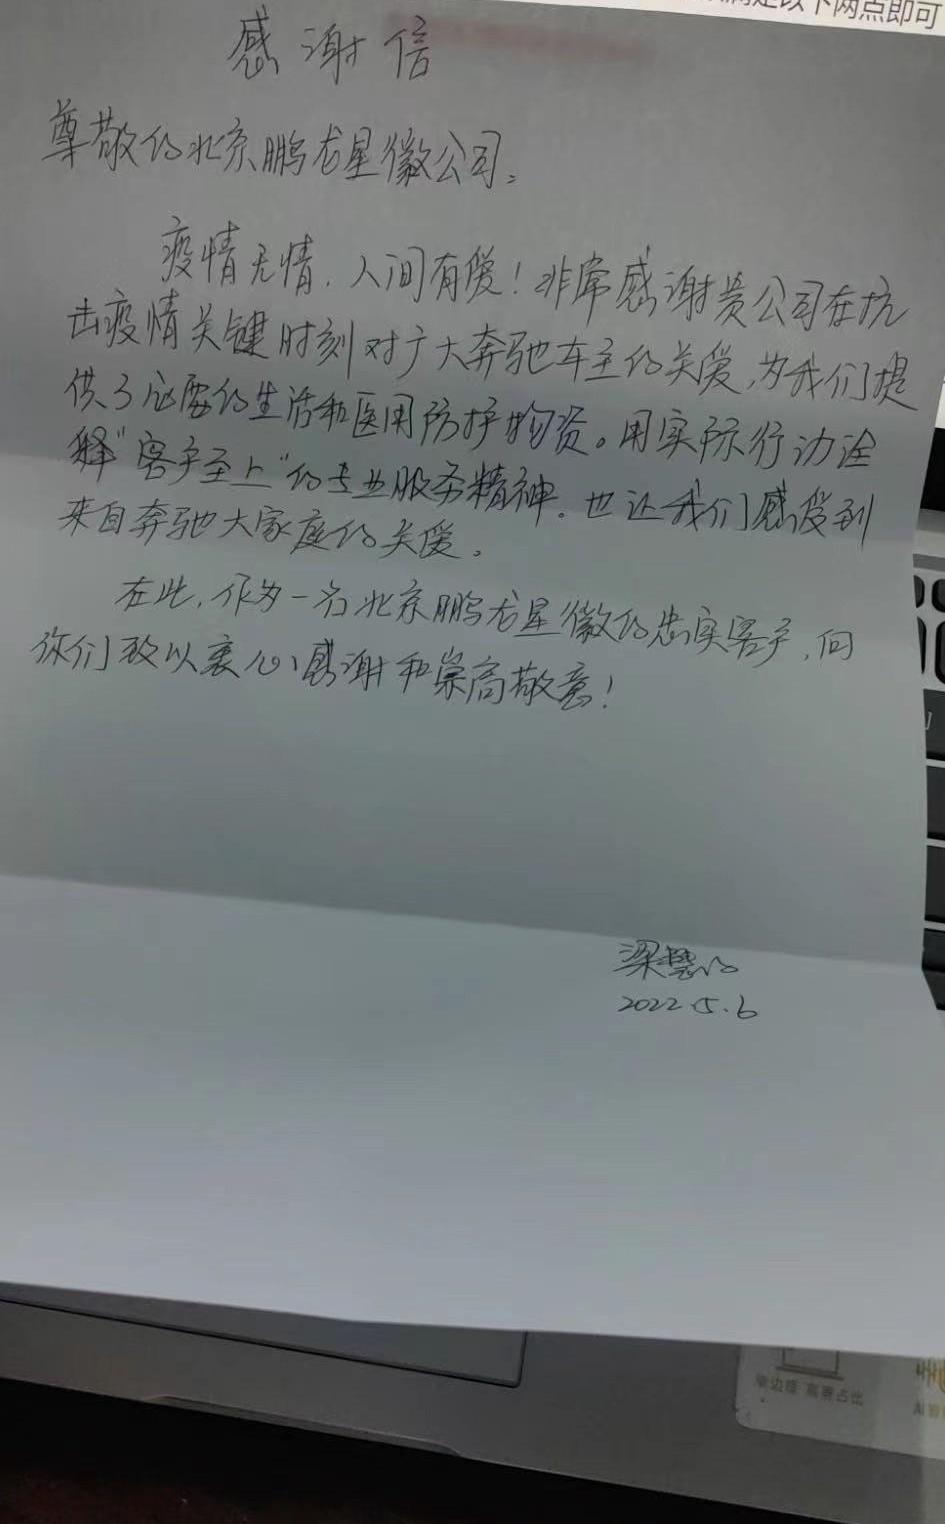 以下两点即可
感谢信
尊敬的北京鹏龙星徽公司：
疫情无情，人间有爱！非常感谢贵公司在抗
击疫情关键时刻对广大奔驰车主的关爱，为我们提
供了必需的生活和医用防护物资。用实际行动诠
释“客户至上”的专业服务精神。也让我们感受到
来自奔驰大家庭的关爱。
在此，作为一名北京鹏龙星徽的忠实客户，向
你们致以衷心感谢和崇高敬意！
梁慧
2022.5.6
窄边框 高屏占比